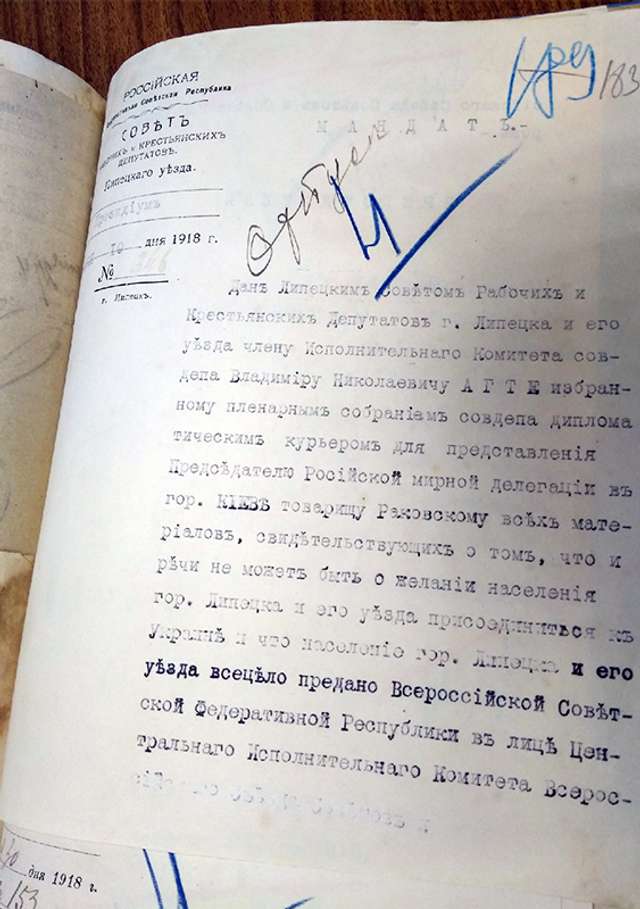 РОССІЙСКАЯ
Совѣтская Республика
СОВѢТЪ
РАБОЧИХЪ и КРЕСТЬЯНСКИХЪ
ДЕПУТАТОВЪ.
Липецкаго уѣзда.
Президіумъ
10 дня 1918 г.
№
г. Липецкъ.
183
МАНДАТЪ.
Данъ Липецкимъ Совѣтомъ Рабочихъ и
Крестьянскихъ Депутатовъ г. Липецка и его
уѣзда члену Исполнительнаго Комитета сов-
депа Владиміру Николаевичу АГТЕ избран-
ному пленарнымъ собраніамъ совдепа диплома
тическимъ курьеромъ для представленія
Предсѣдателю Російской мирной делегаціи въ
гор. КІЕВѢ товарищу Раковскому всѣхъ мате-
ріаловъ, свидѣтельствующихъ о томъ, что и
рѣчи не можетъ быть о желаніи населенія
гор. Липецка и его уѣзда присоединиться къ
Украинѣ и что населеніе гор. Липецка и его
уѣзда всецѣло предано Всероссійской Совѣт-
ской Федеративной Республики въ лицѣ Цен-
тральнаго Исполнительнаго Комитета Всерос-
дня 1918 г.
153